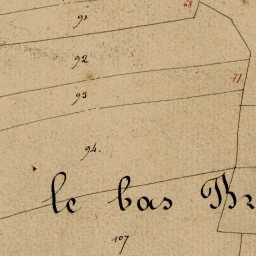 91
92
93
94.
le bas
107